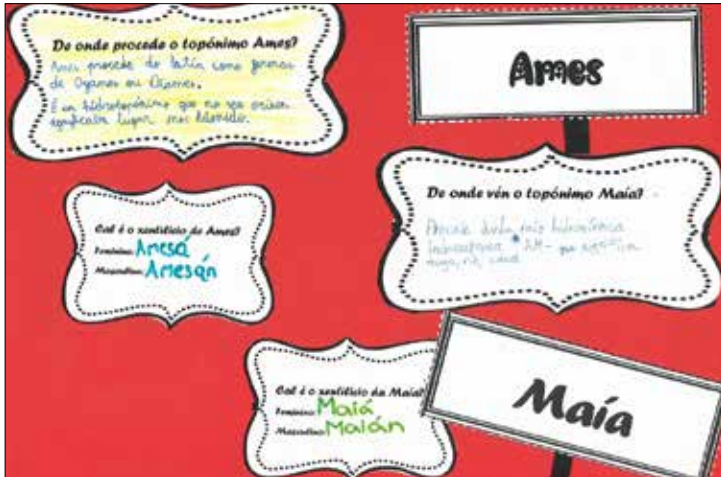 De onde procede o topónimo Ames?
Ames procede do latín como
de Ogames ou
É un hidrotopónimo que no seu
significaba lugar
Ames
De onde vén o topónimo Maía?
Procede dunha raíz hidronímica
indoeuropea * AM- que
auga, río, canal
Cal é o xentilicio de Ames?
Feminino: Amesá
Masculino: Amesán
Cal é o xentilicio da Maía?
Feminino: Maiá
Masculino: Maián
Maía